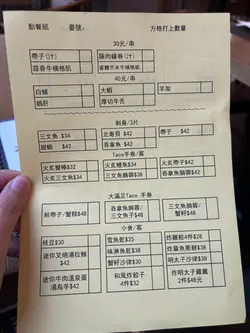 點餐紙 臺號: 方格打上數量
30元/串
帶子(汁) 豚肉蟮卷(汁)
蒜香牛橫格肌 蜜糖芥末牛橫格肌
40元/串
白鱔 大蝦 羊架
鵝肝 厚切牛舌
刺身/3片
三文魚 $34 北寄貝 $42 帶子 $42
甜蝦 $42 吞拿魚 $42
Taco手卷/客
火炙蟹棒$32 火炙鰻魚$34 火炙帶子$42
火炙三文魚$34 火炙三文魚腩蓉$38 火炙吞拿魚腩蓉$38
大滿足Taco 手卷
鮮帶子/蟹糕$48 吞拿魚腩蓉/三文魚子$48 三文魚腩蓉/蟹籽$48
小食/客
枝豆$30 雪魚乾$25 炸雞粒4件$28
迷你叉燒湯拉麵$42 味淋魚乾$30 炸章魚蔥餅$38
蟹籽沙律$30 明太子沙律$38
迷你牛肉溫泉蛋湯烏冬$42 和風炸餃子4件$32 炸明太子雞翼2件$48